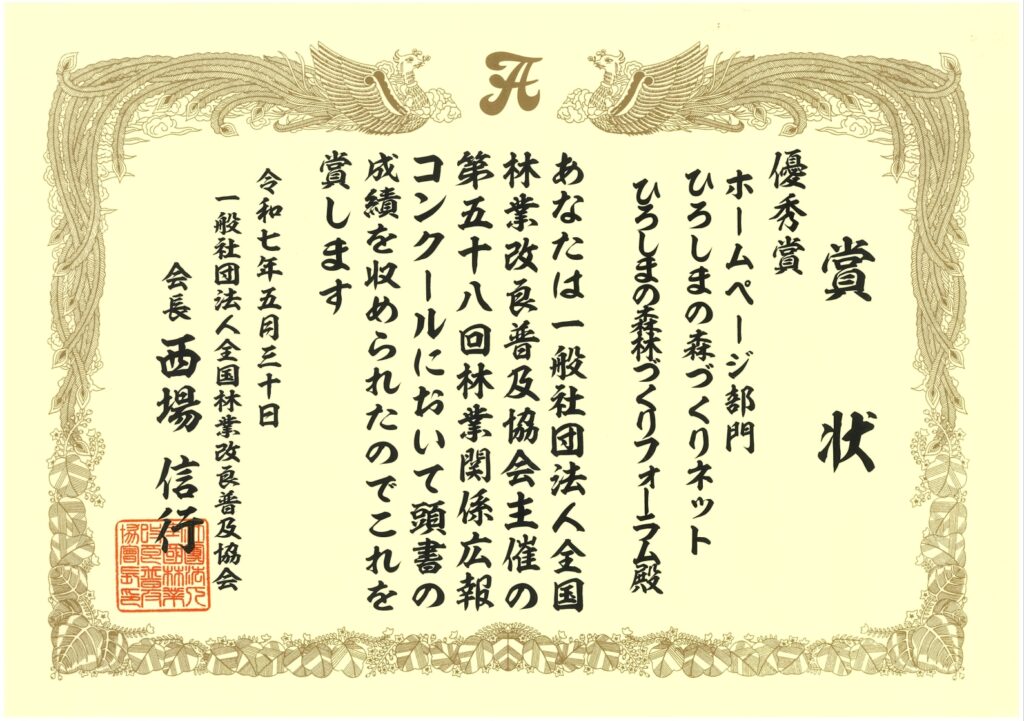 賞状
優秀賞
ホームページ部門
ひろしまの森づくりネット
ひろしまの森林づくりフォーラム殿
あなたは一般社団法人全国
林業改良普及協会主催の
第五十八回林業関係広報
コンクールにおいて頭書の
成績を収められたのでこれを
賞します
令和七年五月三十日
一般社団法人全国林業改良普及協会
会長 西場 信行